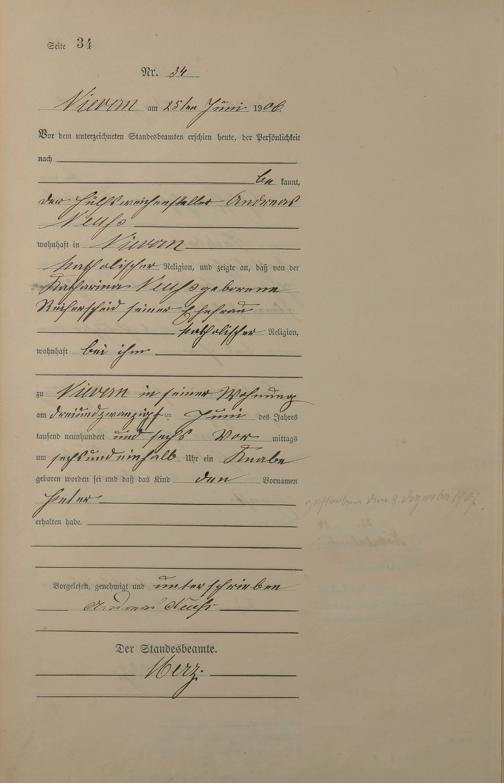 Seite 34
Nr. 34
Nievern am 25ten Juni 1906.
Vor dem unterzeichneten Standesbeamten erschien heute, der Persönlichkeit
nach
be kannt,
der Hülfsweichensteller Andreas
Neuhs
wohnhaft in Nievern
katholischer Religion, und zeigte an, daß von der
Katharina Neuhs geborene
seiner Ehefrau
katholischer Religion,
wohnhaft bei ihm
zu Nievern in seiner Wohnung
am dreiundzwanzigst= Juni des Jahres
tausend neunhundert und sechs Vor mittags
um sechs und einhalb Uhr ein Knabe
geboren worden sei und daß das Kind den Vornamen
Peter
gestorben den 8. Dezember 1907
erhalten habe.
Vorgelesen, genehmigt und unterschrieben
Andreas Neuhs
Der Standesbeamte.
Merz.